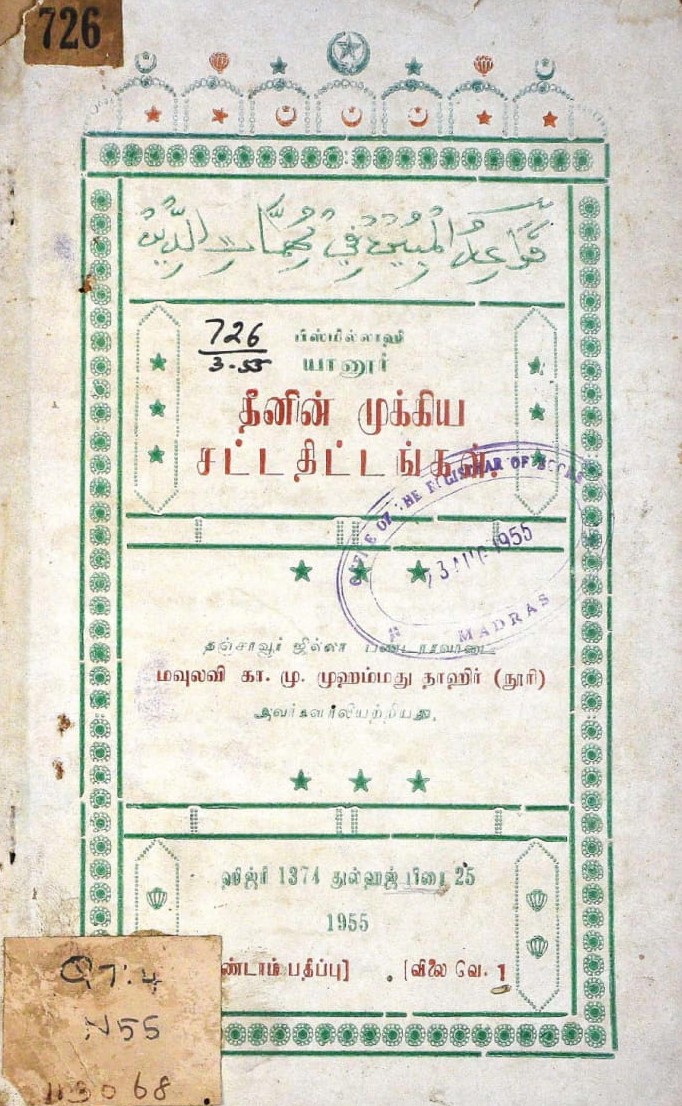 726
قَوَاعِدُ الْمُبِيْنْ فِيْ مُهِمَّاتِ الدِّيْنْ
726
3-55
பிஸ்மில்லாஹி
யானூர்
தீனின் முக்கிய
சட்டதிட்டங்கள்.
OFFICE OF THE REGISTRAR OF BOOKS
1955
MADRAS
தஞ்சாவூர் ஜில்லா பண்டாரவாடை
மவுலவி கா. மு. முஹம்மது தாஹிர் (நூரி)
அவர்களியற்றியது.
ஹிஜ்ரி 1374 துல்ஹஜ் பிறை 25
1955
ண்டாம் பதிப்பு] [விலை வே. 1
Q7:4
N55
113068